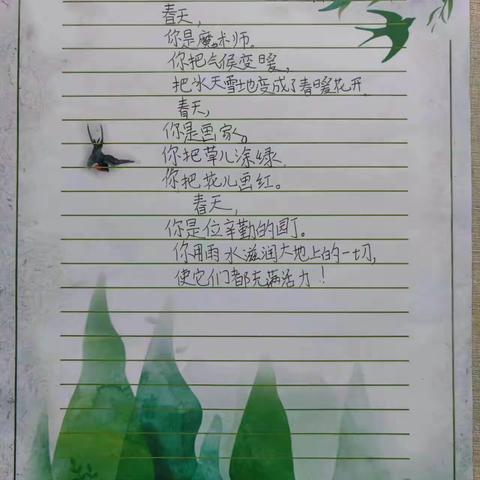 春天，
你是魔术师。
你把气候变暖，
把冰天雪地变成了春暖花开。
春天，
你是画家。
你把草儿涂绿，
你把花儿画红。
春天，
你是位辛勤的园丁。
你用雨水滋润大地上的一切，
使它们都充满活力！